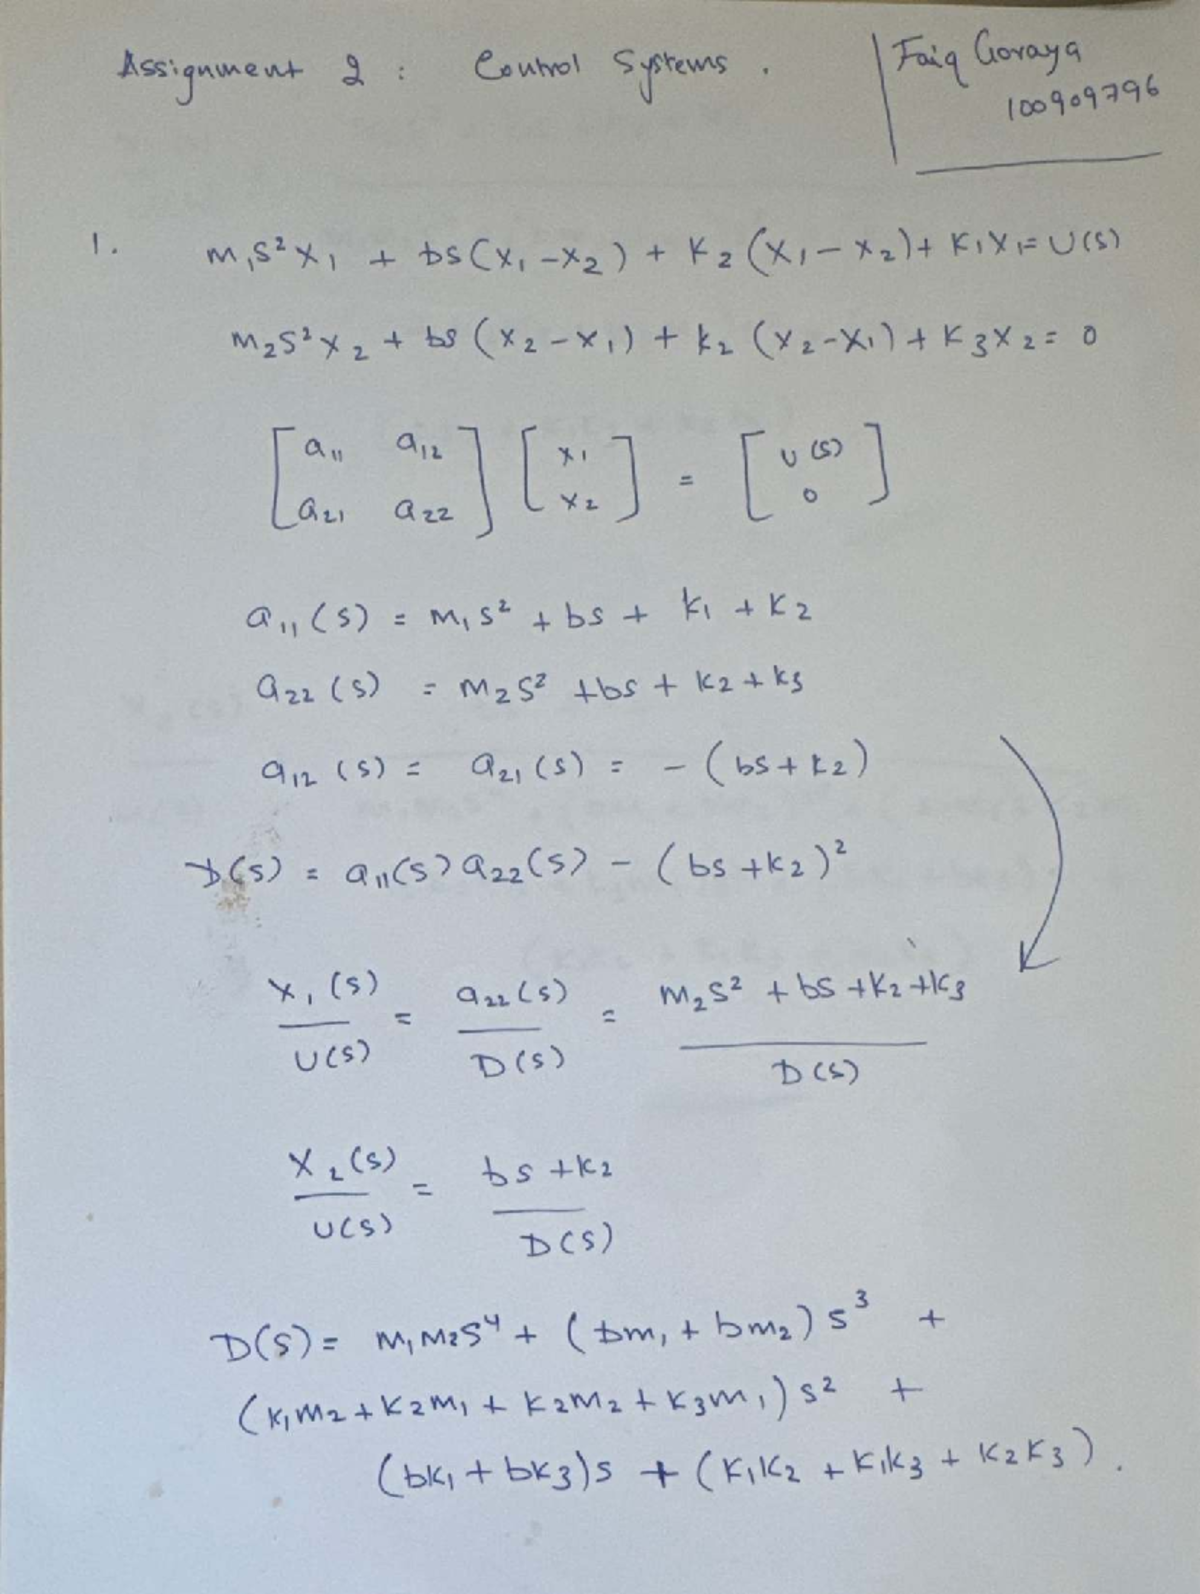 Assignment 2 : Control Systems .
Faiq Goraya
100909796
1.
m₁s²X₁ + bs(X₁-X₂) + K₂(X₁-X₂)+ K₁X₁= U(s)
m₂s²X₂ + bs(X₂-X₁) + k₂(X₂-X₁)+ K₃X₂= 0
[a₁₁ a₁₂
a₂₁ a₂₂] [x₁
x₂] = [U(s)
0]
a₁₁(s) = m₁s² + bs + k₁ + K₂
a₂₂(s) = m₂s² +bs + k₂+k₃
a₁₂(s) = a₂₁(s) = -(bs+k₂)
D(s) = a₁₁(s)a₂₂(s) - (bs+k₂)²
X₁(s)/U(s) = a₂₂(s)/D(s) = m₂s² + bs +K₂+k₃/D(s)
X₂(s)/U(s) = bs +k₂/D(s)
D(s) = m₁m₂s⁴ + (bm₁ + bm₂)s³ +
(k₁m₂+K₂m₁ + K₂m₂+K₃m₁)s² +
(bk₁+bk₃)s + (K₁K₂ + K₁k₃ + K₂K₃).